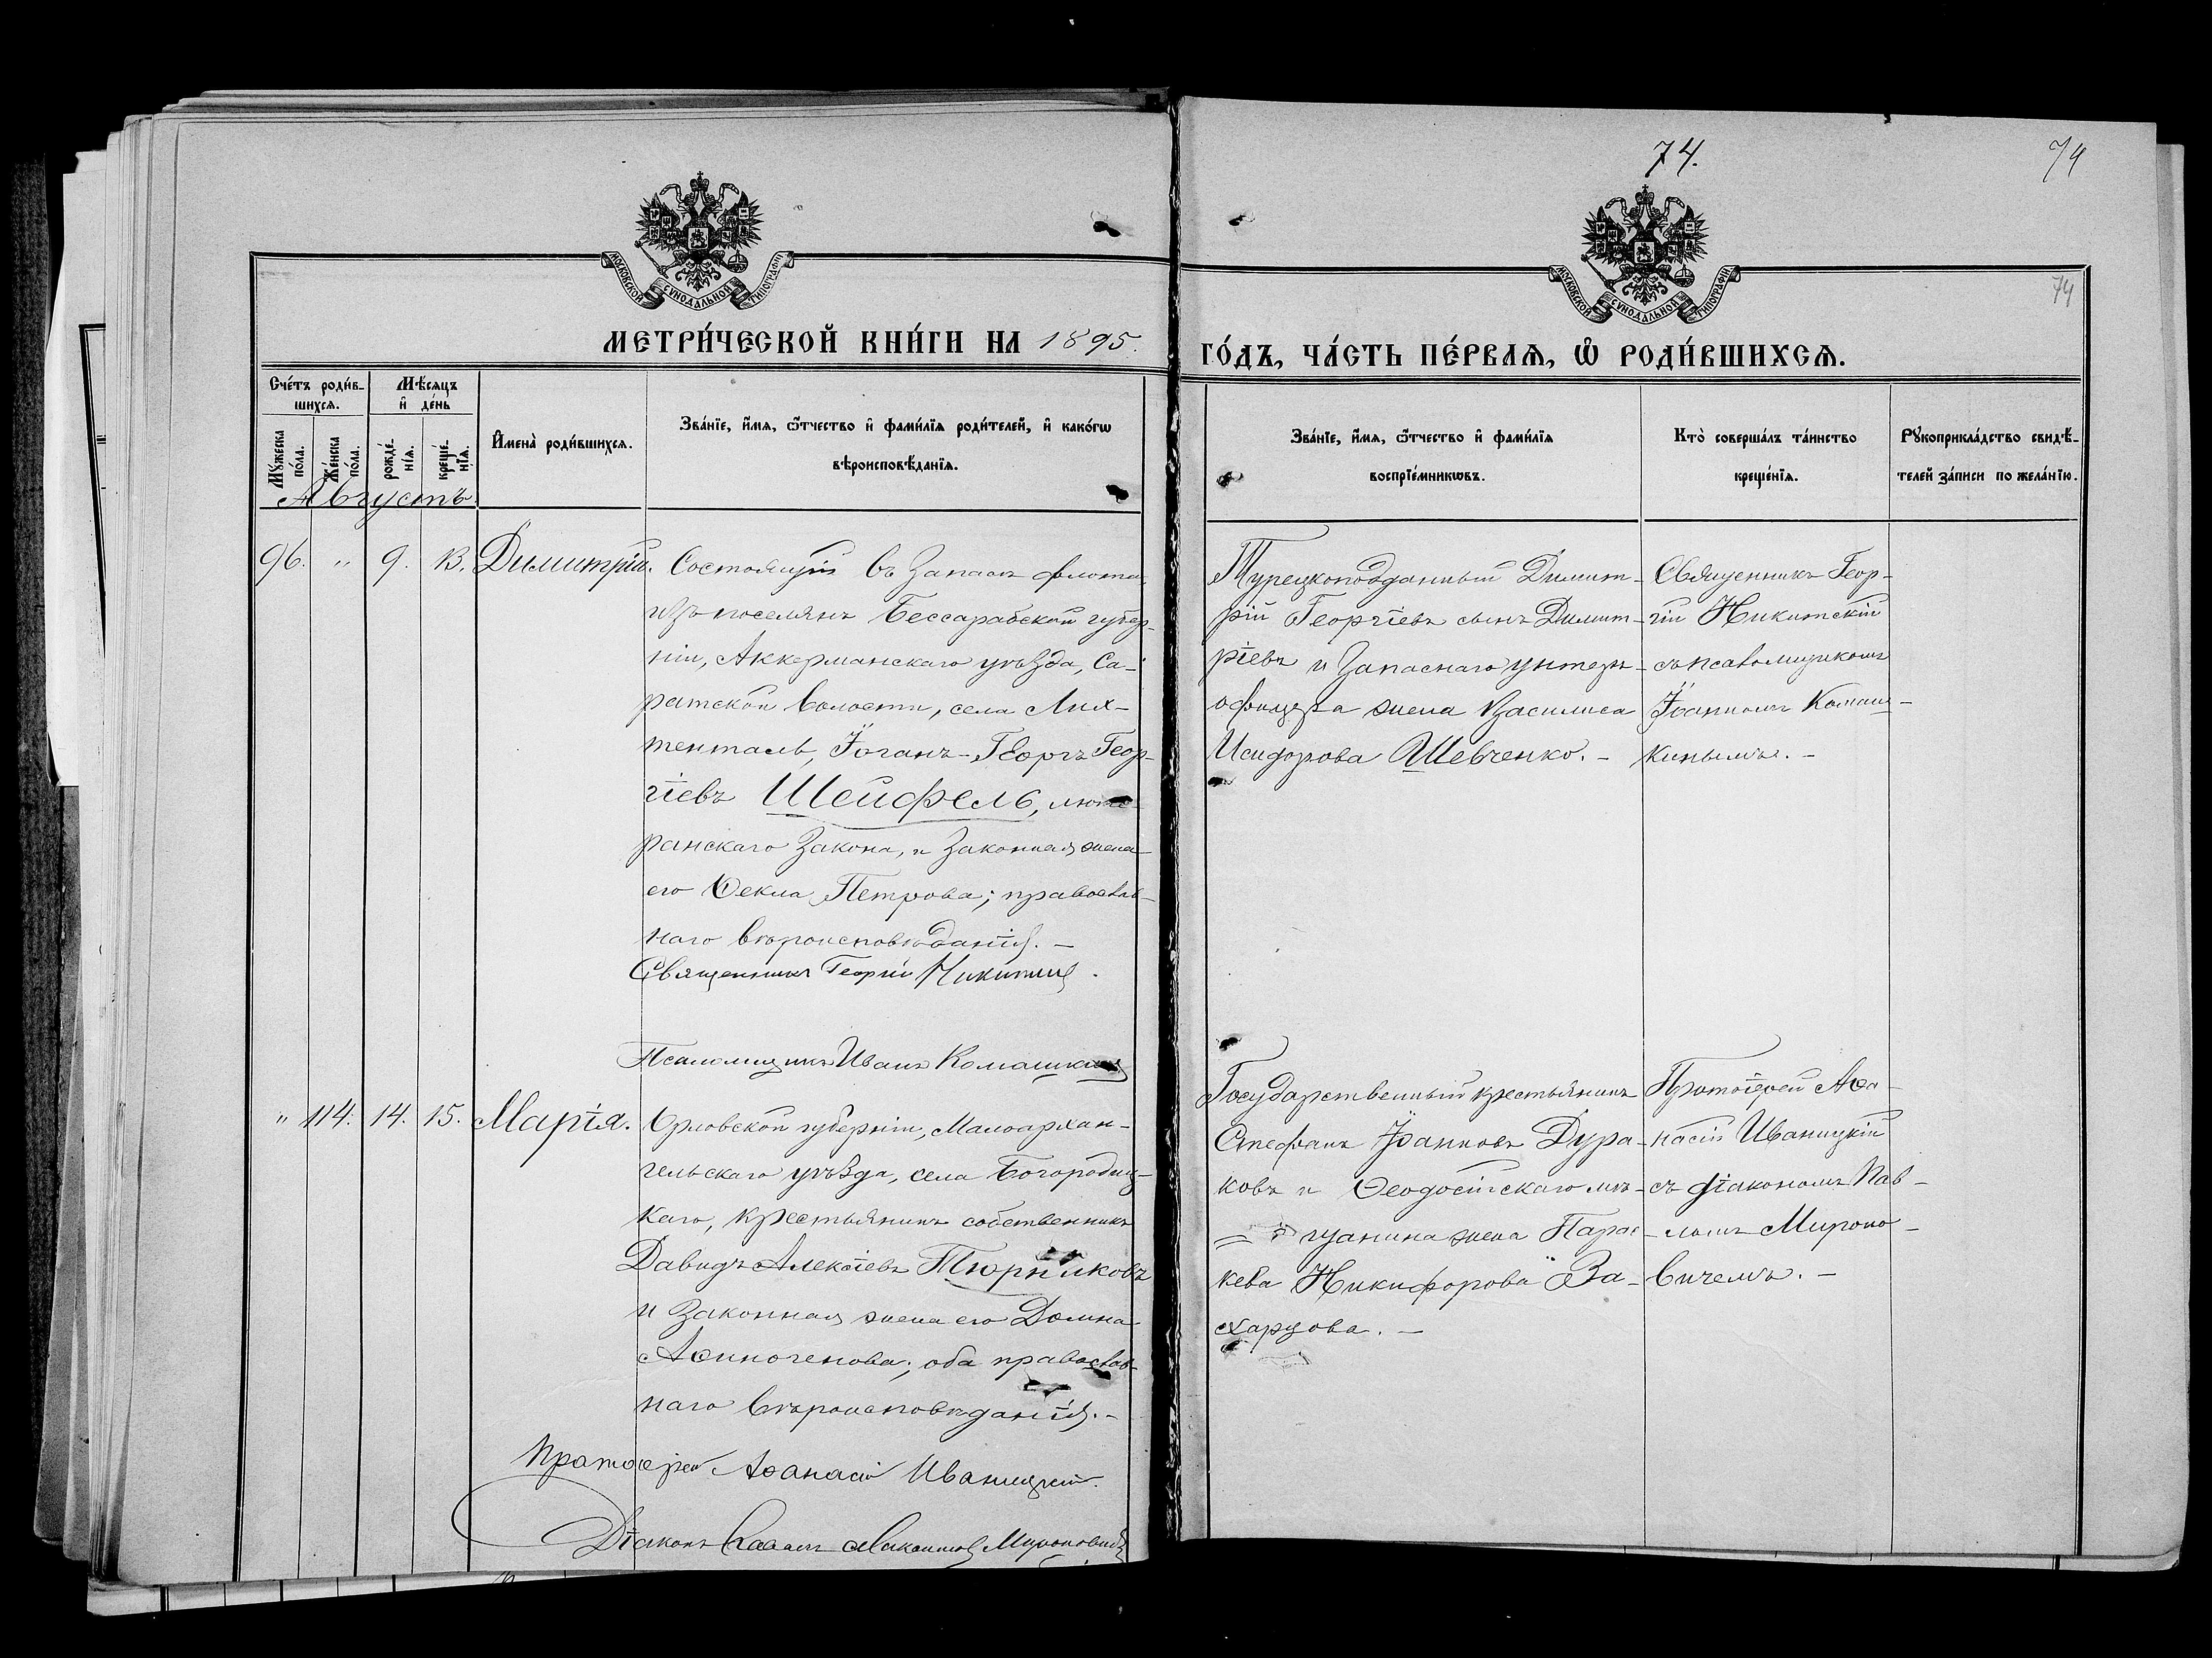 74.
74
74
МОСКОВСКОЙ СУНОДАЛЬНОЙ ТИПОГРАФІИ
МОСКОВСКОЙ СУНОДАЛЬНОЙ ТИПОГРАФІИ
МЕТРИ́ЧЕСКОЙ КНИ́ГИ НА 1895.
ГО́ДЪ, ЧА́СТЬ ПЕ́РВАѦ, Ѽ РОДИ́ВШИХСѦ.
Сче́тъ роди́в-
шихсѧ.
Мѣ́сѧцъ
и҆ де́нь
Мꙋ́жеска по́ла.
Же́нска по́ла.
рожде́нїѧ.
креще́нїѧ.
И҆мена̀ роди́вшихсѧ.
Зва́нїе, и҆́мѧ, ѻ҆́тчество и҆ фами́лїѧ роди́телей, и҆ како́гѡ
вѣроисповѣ́данїѧ.
Зва́нїе, и҆́мѧ, ѻ҆́тчество и҆ фами́лїѧ
воспрїе́мникѡвъ.
Кто̀ соверша́лъ та́инство
креще́нїѧ.
Рꙋкоприкла́дство свидѣ́-
телей за́писи по жела́нїю.
Августъ.
96. " 9. 13. Димитрій.
Состоящій въ запасѣ флота
изъ поселянъ Бессарабской губер-
ніи, Аккерманскаго уѣзда, Са-
ратской волости, села Лих-
тенталь, Іоганъ-Георгъ Геор-
гіевъ Шейфель, люте-
ранскаго закона, и законная жена
его Ѳекла Петрова; православ-
наго вѣроисповѣданія. –
Священникъ Георгій Никитскій.
Псаломщикъ Иванъ Комашкинъ
Турецкоподданный Димит-
рій Георгіевъ сынъ Димит-
ріевъ и запаснаго унтеръ-
офицера жена Василиса
Исидорова Шевченко. –
Священникъ Геор-
гій Никитскій
съ псаломщикомъ
Іоанномъ Комаш-
кинымъ. –
" 114. 14. 15. Марія.
Орловской губерніи, Малоархан-
гельскаго уѣзда, села Богородиц-
каго, крестьянинъ собственникъ
Давидъ Алексіевъ Тюриковъ
и законная жена его Домна
Аѳиногенова; оба православ-
наго вѣроисповѣданія. –
Протоіерей Аѳанасій Иваницкій.
Діаконъ Павелъ Мироновичъ
Государственный крестьянинъ
Стефанъ Іоанновъ Дура-
ковъ и Ѳеодосійскаго мѣ-
щанина жена Парас-
кева Никифорова За-
харцова. –
Протоіерей Аѳа-
насій Иваницкій
съ діакономъ Пав-
ломъ Мироно-
вичемъ. –